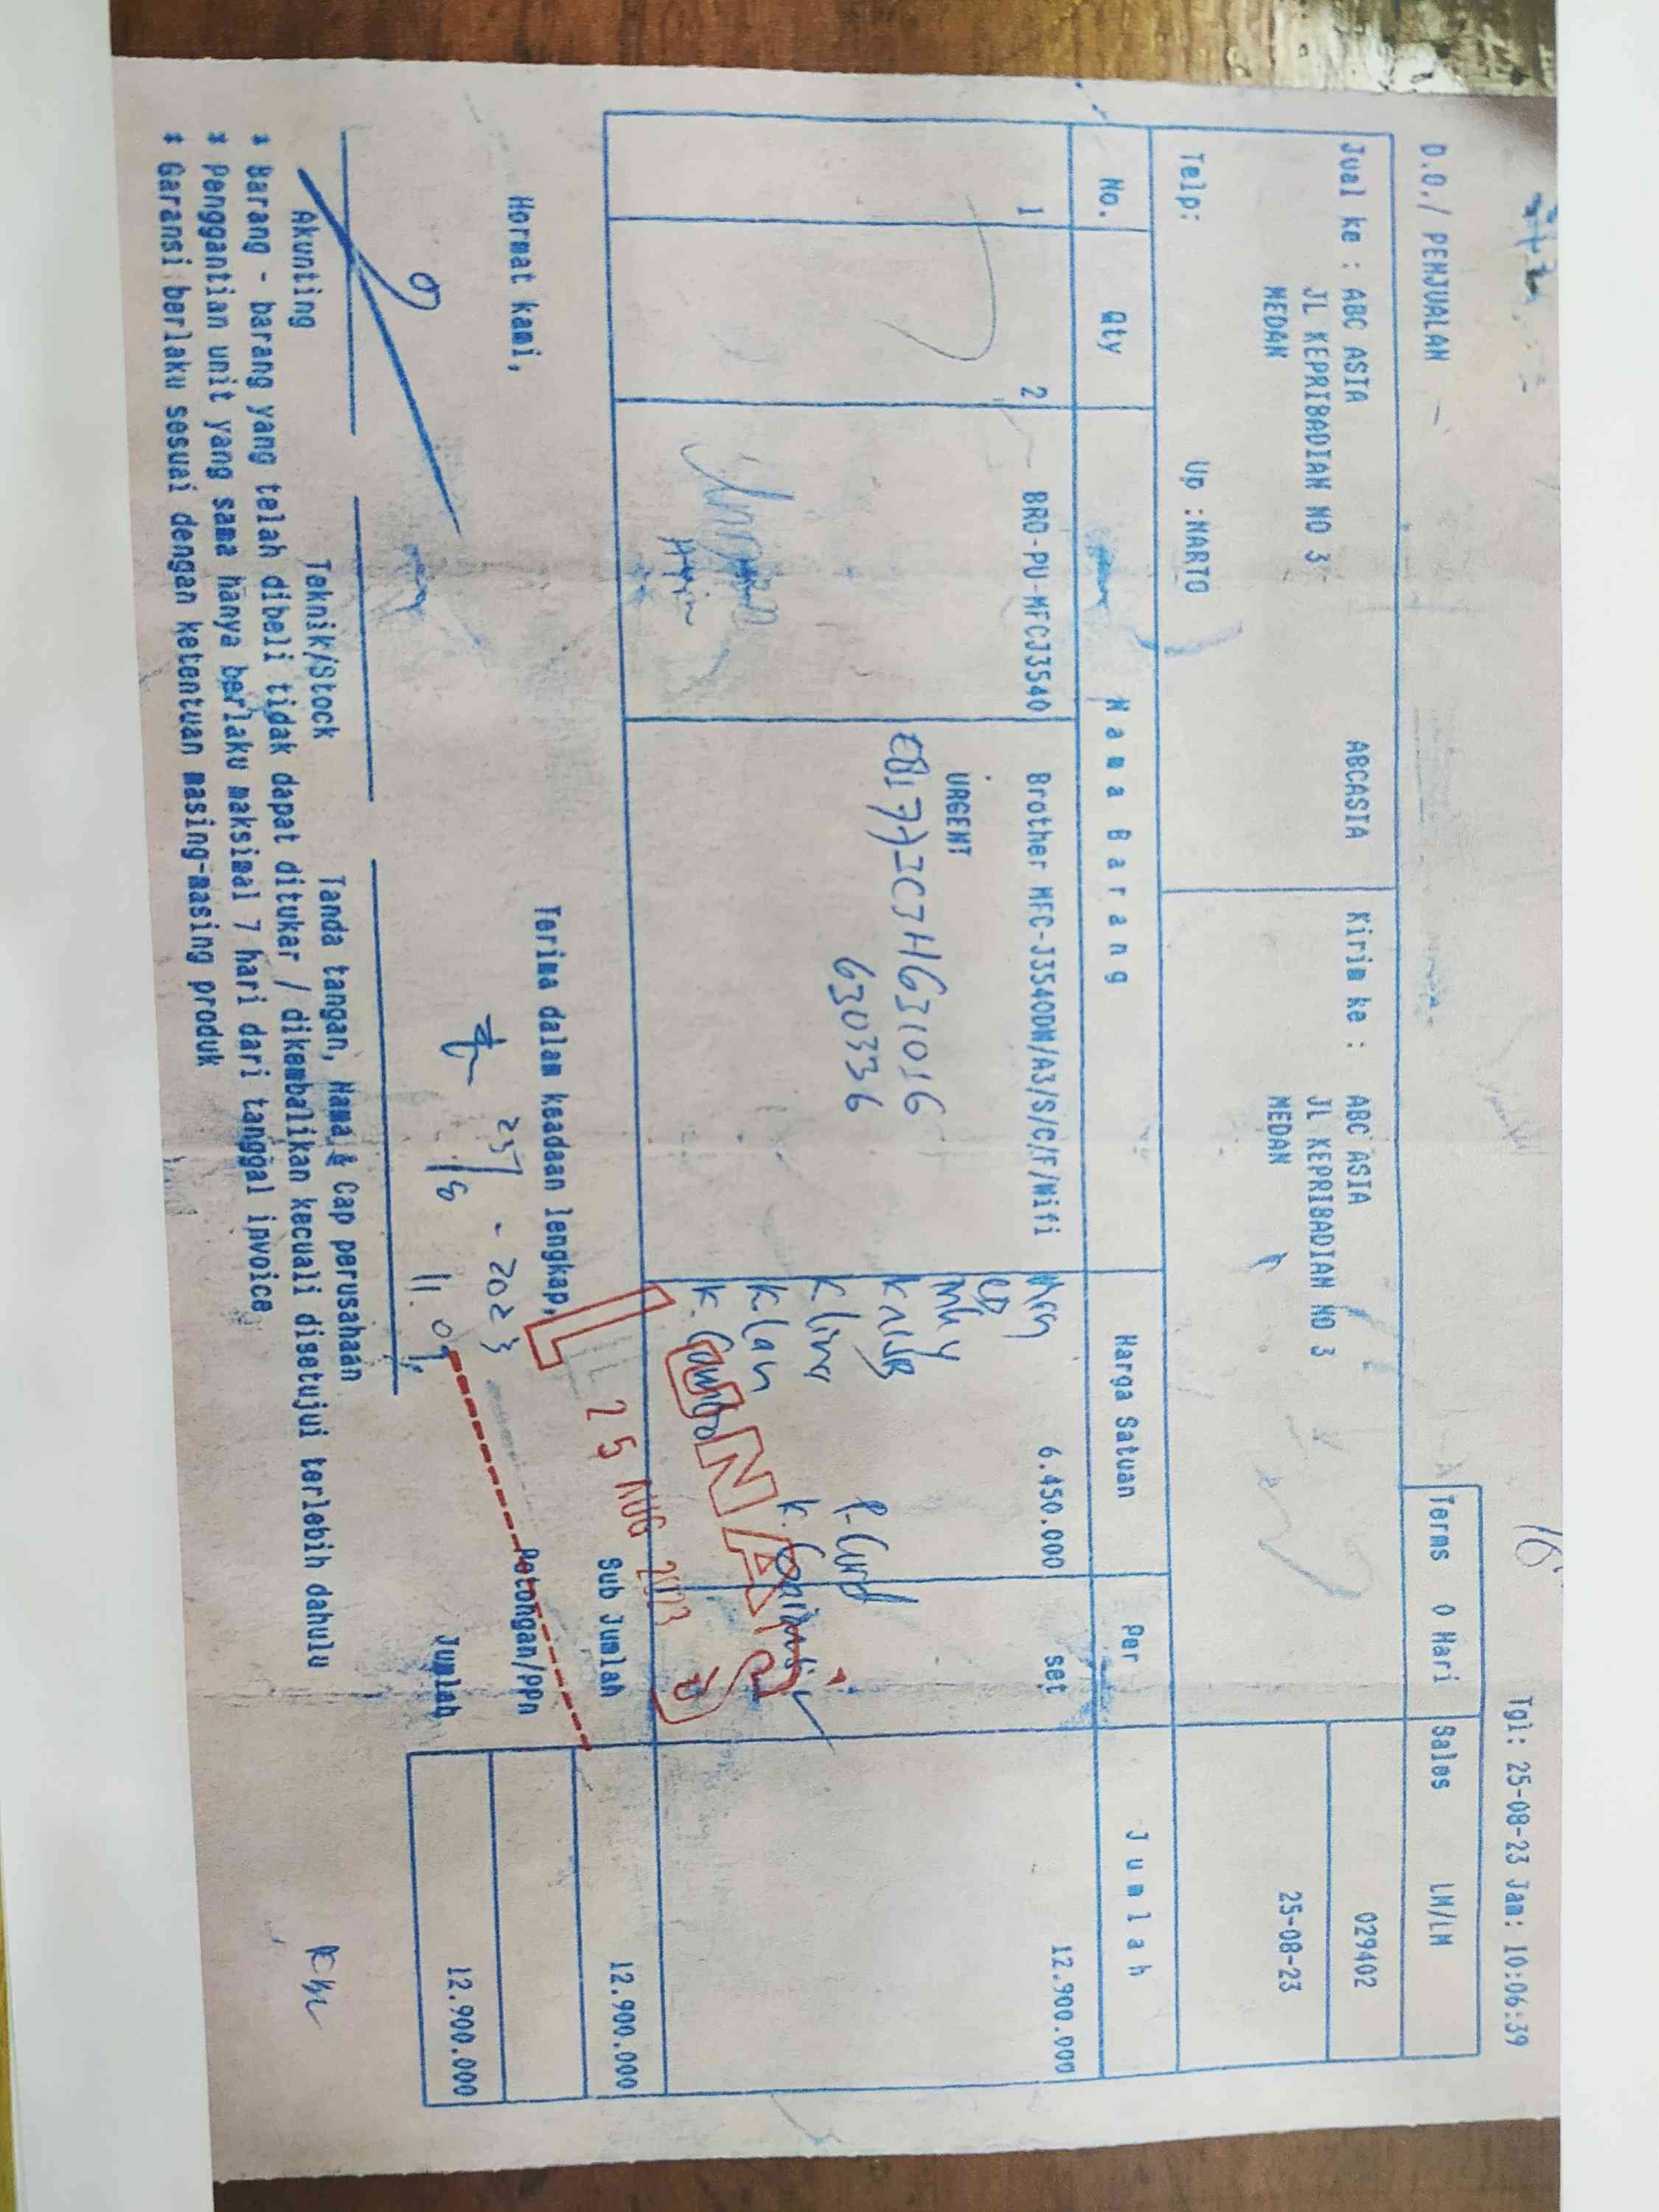 Tgl: 25-08-23 Jam: 10:06:39
D.O./ PENJUALAN
Terms 0 Hari Sales LM/LM
Jual ke : ABC ASIA ABCASIA
JL KEPRIBADIAN NO 3
MEDAN
Kirim ke : ABC ASIA
JL KEPRIBADIAN NO 3
MEDAN
029402
25-08-23
Telp: Up :NARTO
No. Qty Nama Barang Harga Satuan Per Jumlah
1 2 BRO-PU-MFCJ3540 Brother MFC-J3540DW/A3/S/C/F/Wifi 6.450.000 set 12.900.000
URGENT
630336
LUNAS
25 AUG 2023
Hormat kami,
Terima dalam keadaan lengkap,
Sub Jumlah 12.900.000
Potongan/PPn
Jumlah 12.900.000
25/8 - 2023
Akunting Teknik/Stock Tanda tangan, Nama & Cap perusahaan
* Barang - barang yang telah dibeli tidak dapat ditukar / dikembalikan kecuali disetujui terlebih dahulu
* Penggantian unit yang sama hanya berlaku maksimal 7 hari dari tanggal invoice
* Garansi berlaku sesuai dengan ketentuan masing-masing produk